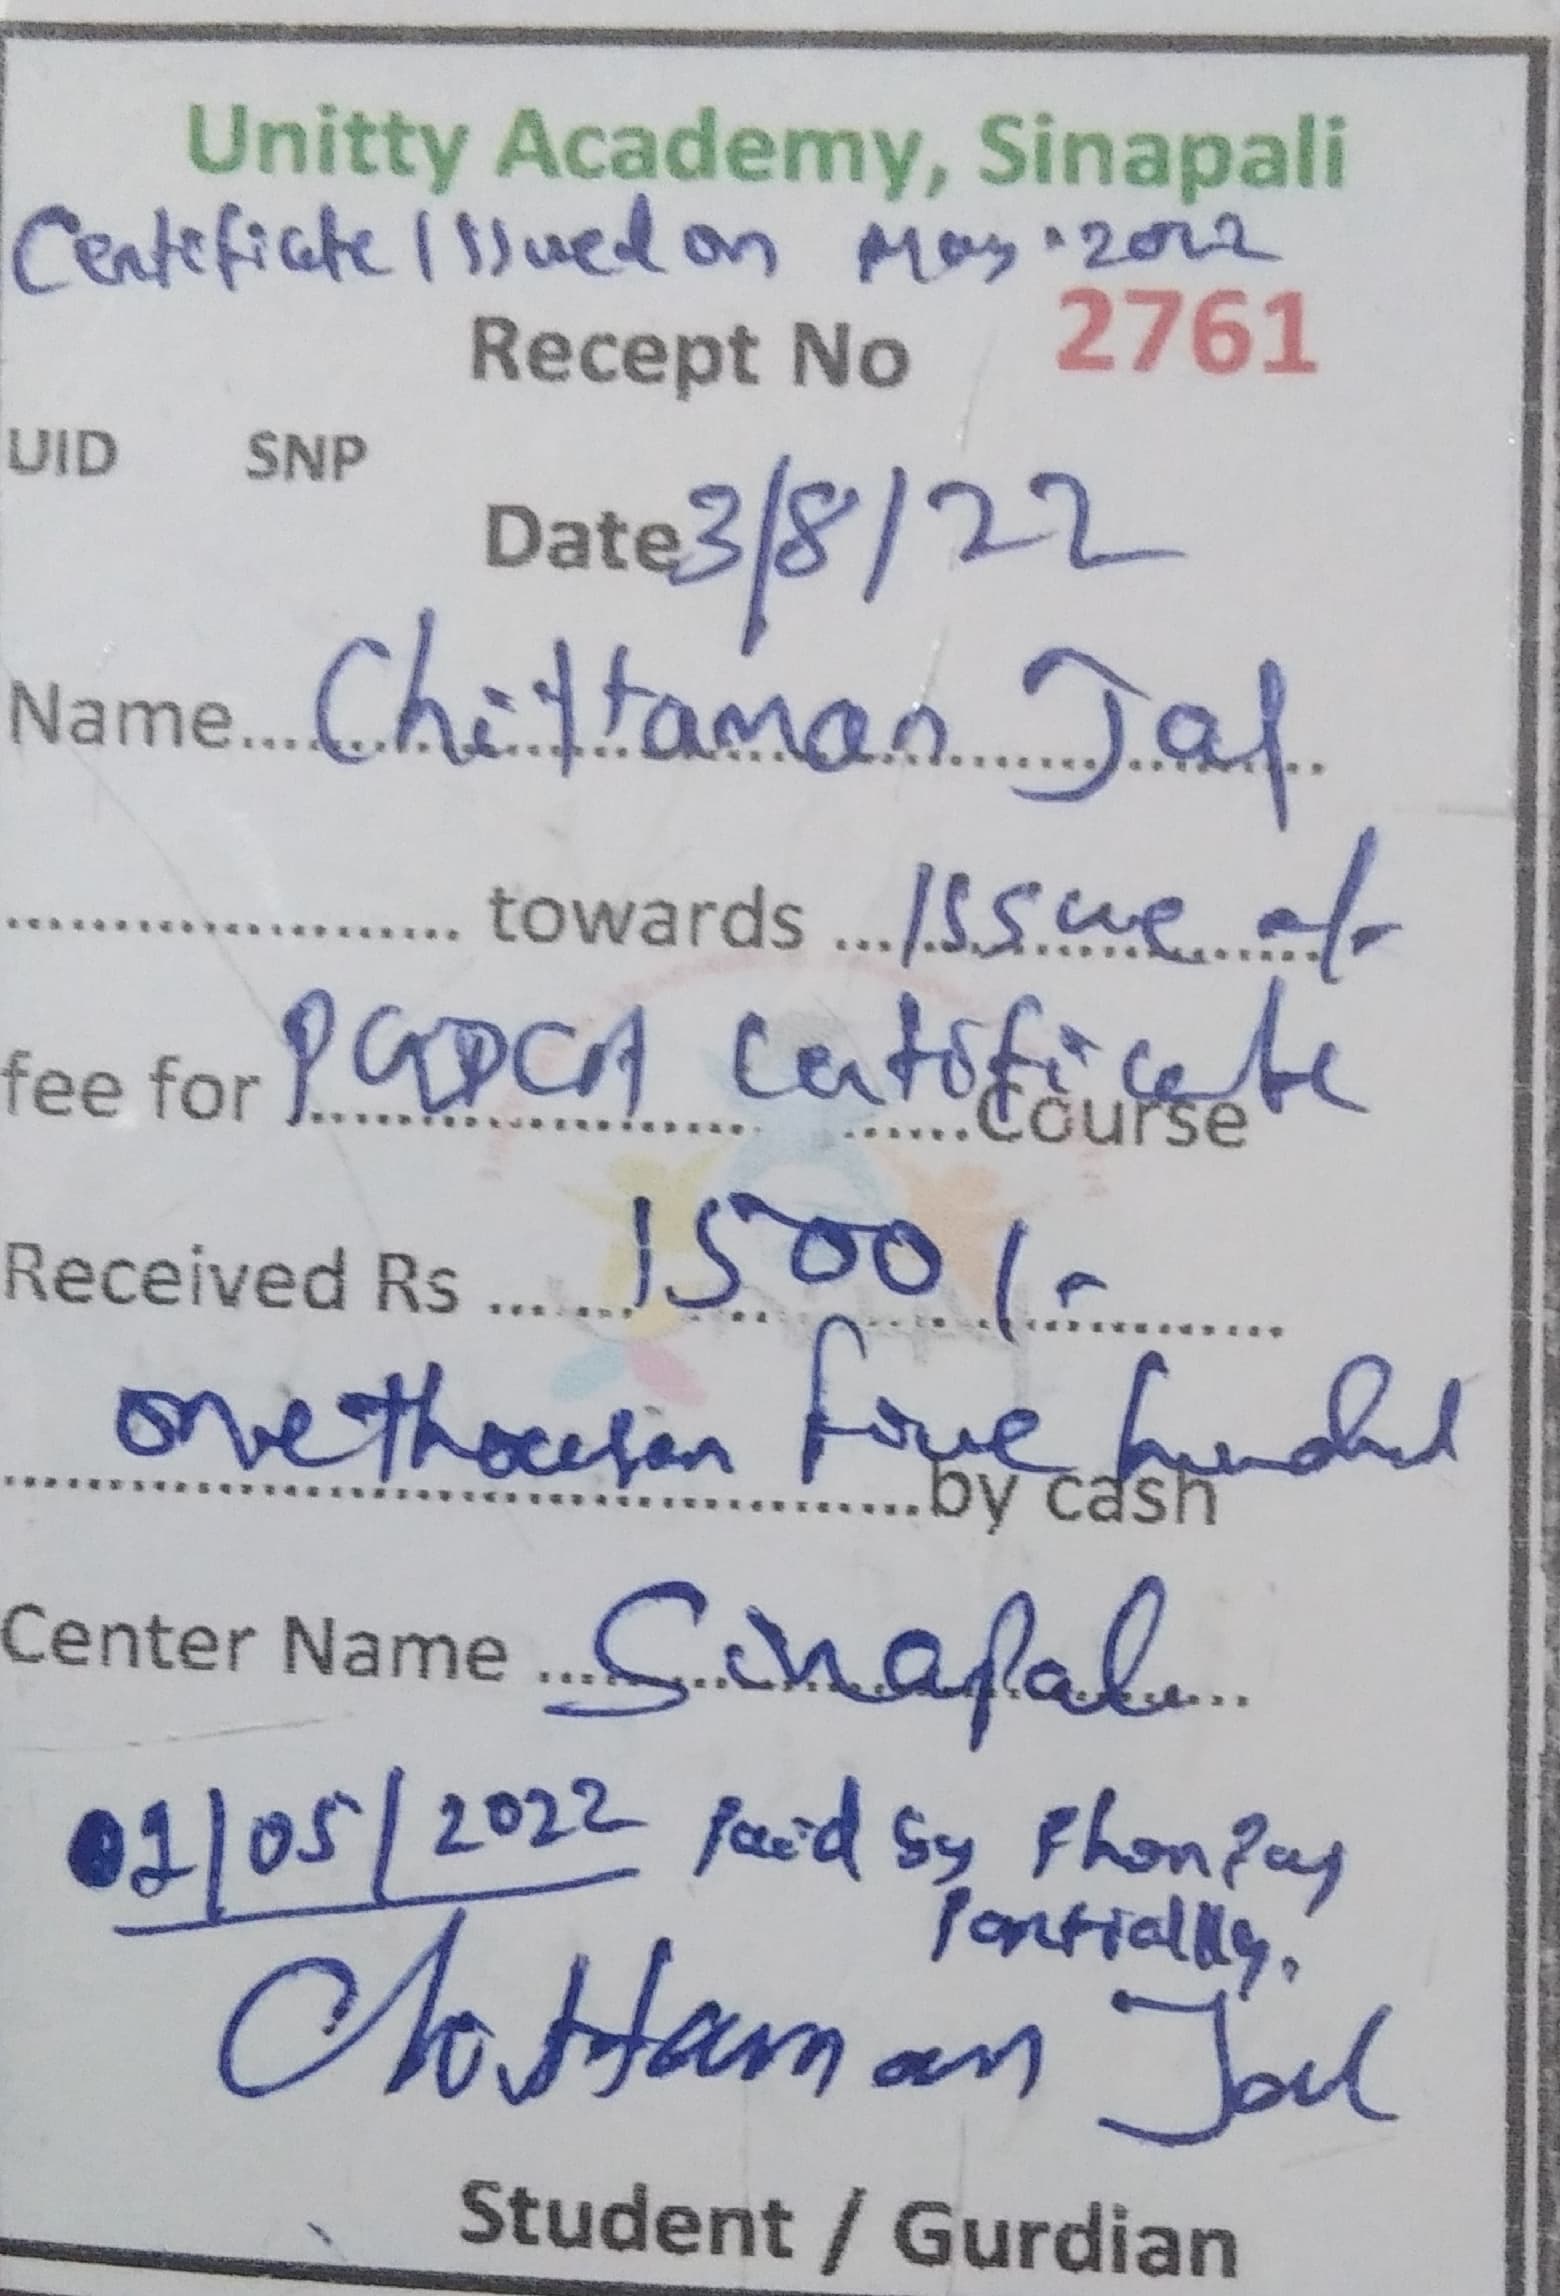 Unitty Academy, Sinapali
Certificate Issued on May 2022
Recept No 2761
UID SNP
Date 3/8/22
Name.... Chittaman Jal
towards ... Issue of
fee for PGDCA Certificate Course
Received Rs ...... 1500/-
one thousan five hundred
by cash
Center Name .... Sinapali
02/05/2022 Paid by PhonPay
Partially.
Chittaman Jal
Student / Gurdian